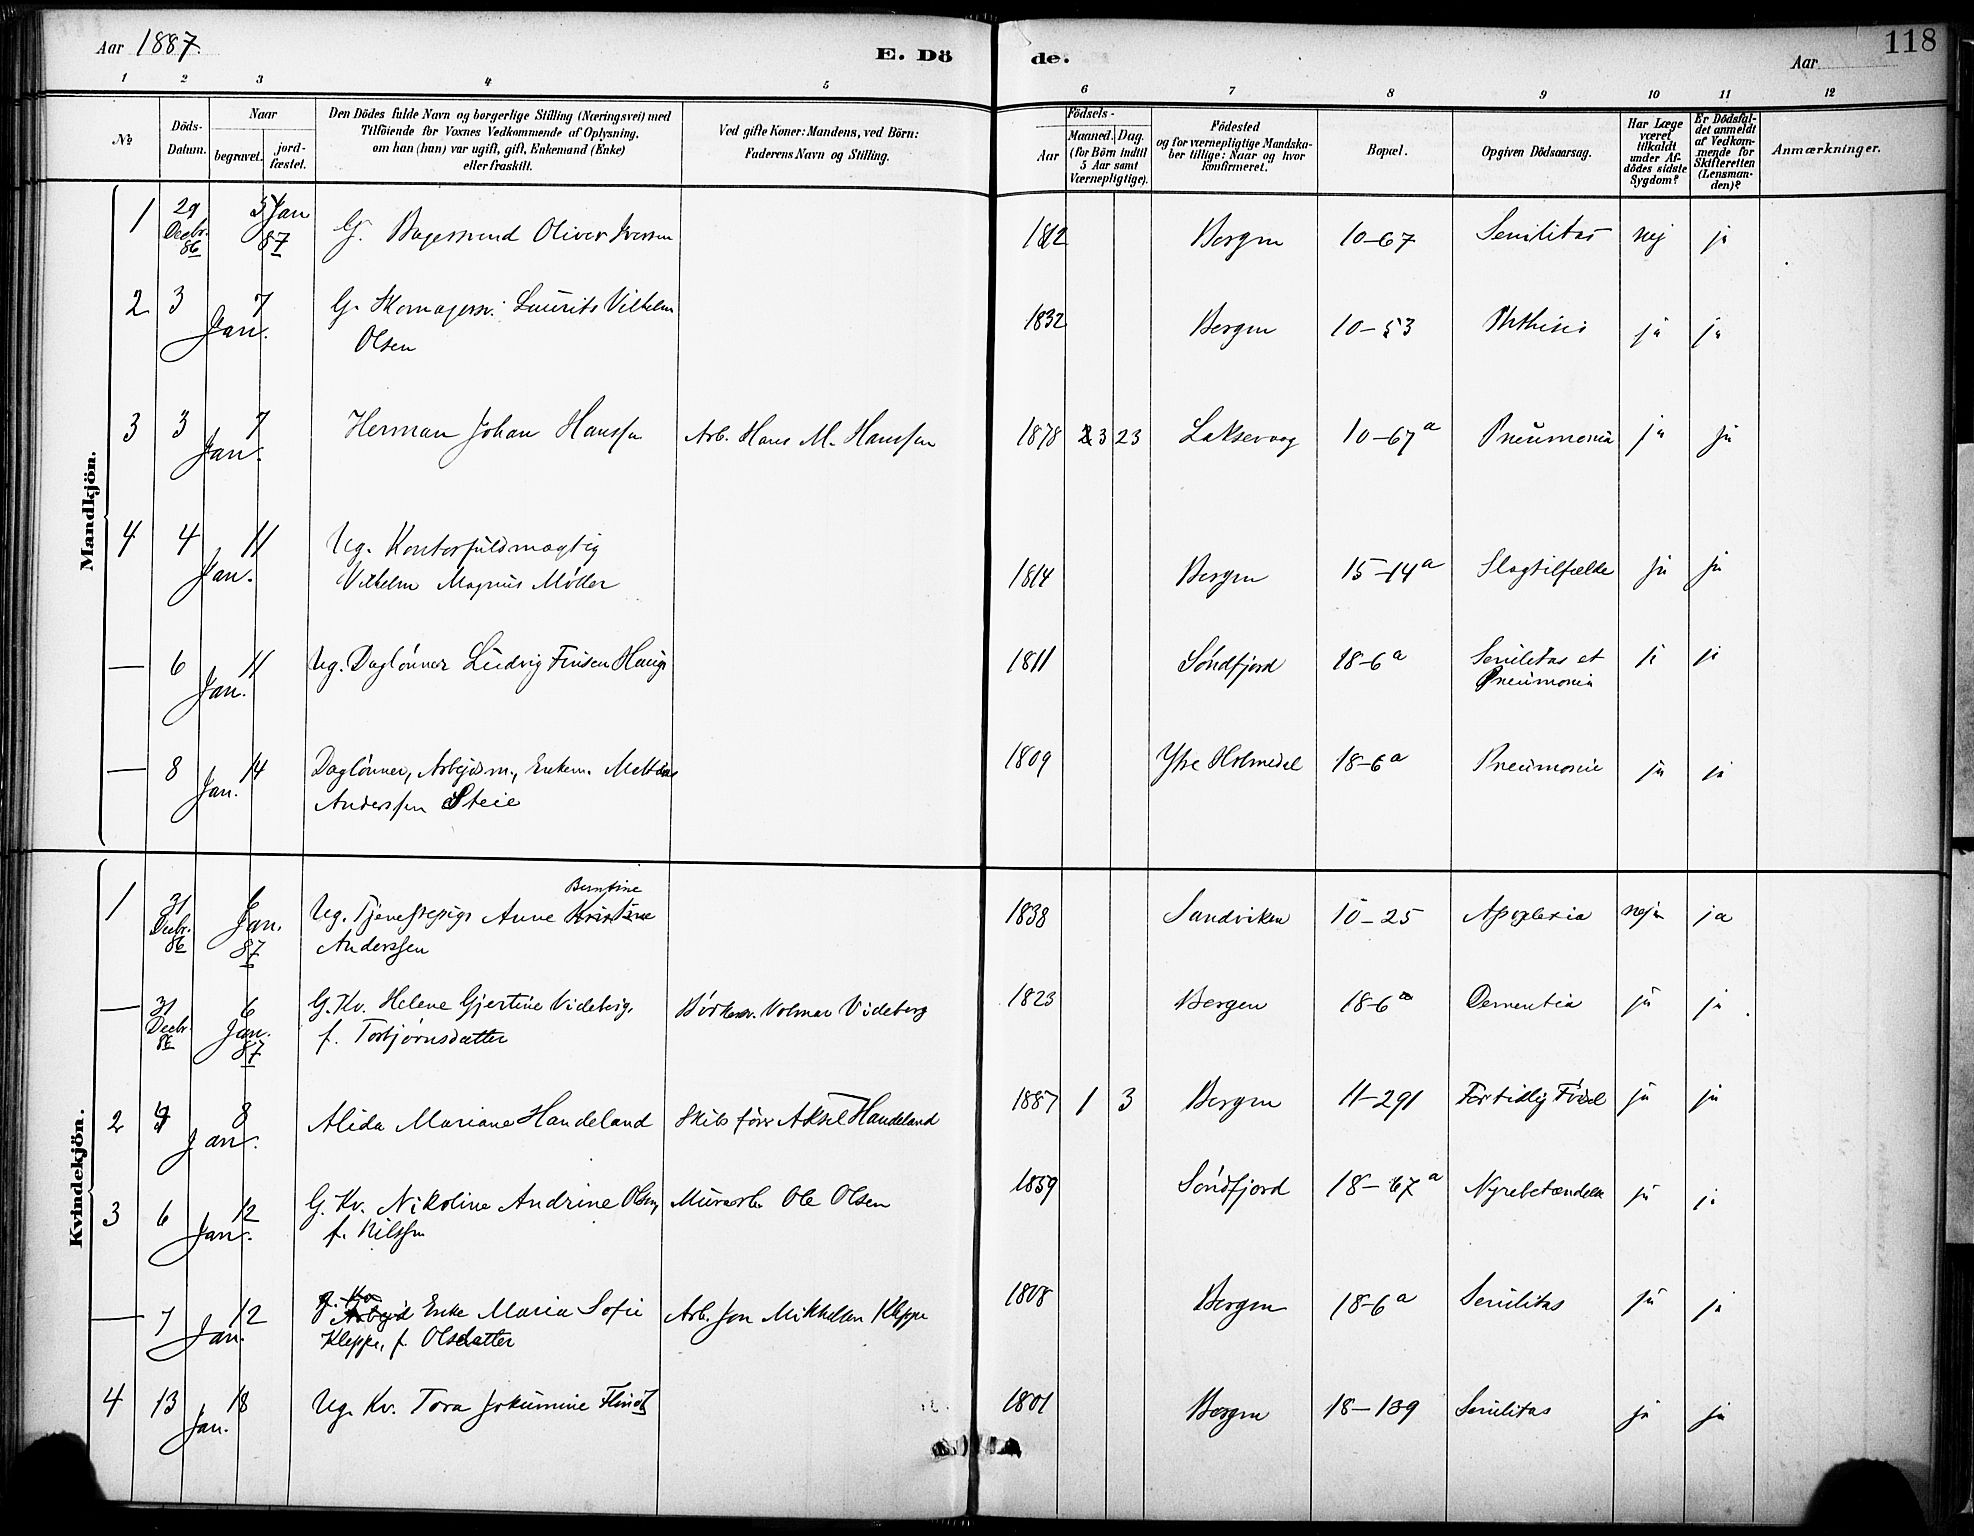 Aar 1887.
E. Dö
de.
Aar
118
1 2 3 4 5 6 7 8 9 10 11 12
№
Döds-
Datum.
Naar
begravet.
jord-
fæstet.
Den Dödes fulde Navn og borgerlige Stilling (Næringsvei) med
Tilföiende for Voxnes Vedkommende af Oplysning,
om han (hun) var ugift, gift, Enkemand (Enke)
eller fraskilt.
Ved gifte Koner: Mandens, ved Börn:
Faderens Navn og Stilling.
Födsels-
Aar
Maaned. Dag.
(for Börn indtil
5 Aar samt
Værnepligtige).
Födested
og for værnepligtige Mandska-
ber tillige: Naar og hvor
konfirmeret.
Bopæl.
Opgiven Dödsaarsag.
Har Læge
været
tilkaldt
under Af-
dödes sidste
Sygdom?
Er Dödsfal-
det anmeldt
af Vedkom-
mende for
Skifteretten
(Lensman-
den)?
Anmærkninger.
Mandkjön.
1 29 Decbr. 86 5 Jan 87 G. Bagersvend Oliver Iversen 1812 Bergen 10-67 Senilitas nej ja
2 3 7 Jan. G. Skomagersv. Laurits Vilhelm
Olsen 1832 Bergen 10-53 Phthisis ja ja
3 3 7 Jan. Herman Johan Hanssen Arb. Hans M. Hanssen 1878 3 23 Laksevaag 10-67a Pneumonia ja ja
4 4 11 Jan. Ug. Kontorfuldmægtig
Vilhelm Magnus Möller 1814 Bergen 15-14a Slagtilfælde ja ja
— 6 11 Jan. Ug. Daglönner Ludvig Finsen Hauge 1811 Söndfjord 18-6a Senilitas et
Pneumonia ja ja
— 8 14 Jan. Daglönner, Arbejdsm., Enkem. Mattias
Anderssen Steie 1809 Ytre Holmedal 18-6a Pneumonia ja ja
Kvindekjön.
1 31 Decbr. 86 Jan. 87 Ug. Tjenestepige Anne Kristine Berntine
Anderssen 1838 Sandviken 10-25 Apoplexia nej ja
— 31 Decbr. 86 6 Jan. 87 G. Kv. Helene Gjertine Videberg,
f. Torbjörnsdatter Bödkersv. Volmar Videberg 1823 Bergen 18-6a Dementia ja ja
2 8 Jan. Alida Mariane Handeland Skibsförer Aksel Handeland 1887 1 3 Bergen 11-291 For tidlig Födsel ja ja
3 6 12 Jan. G. Kv. Nikoline Andrine Olsen,
f. Nilssen Murarb. Ole Olsen 1859 Söndfjord 18-67a Nyrebetændelse ja ja
— 7 12 Jan. G. Kv. Arbejd Enke Maria Sofie
Kleppe, f. Olsdatter Arb. Jon Mikkelsen Kleppe 1808 Bergen 18-6a Senilitas ja ja
4 13 18 Jan. Ug. Kv. Tora Jokumine Flindt 1801 Bergen 18-139 Senilitas ja ja